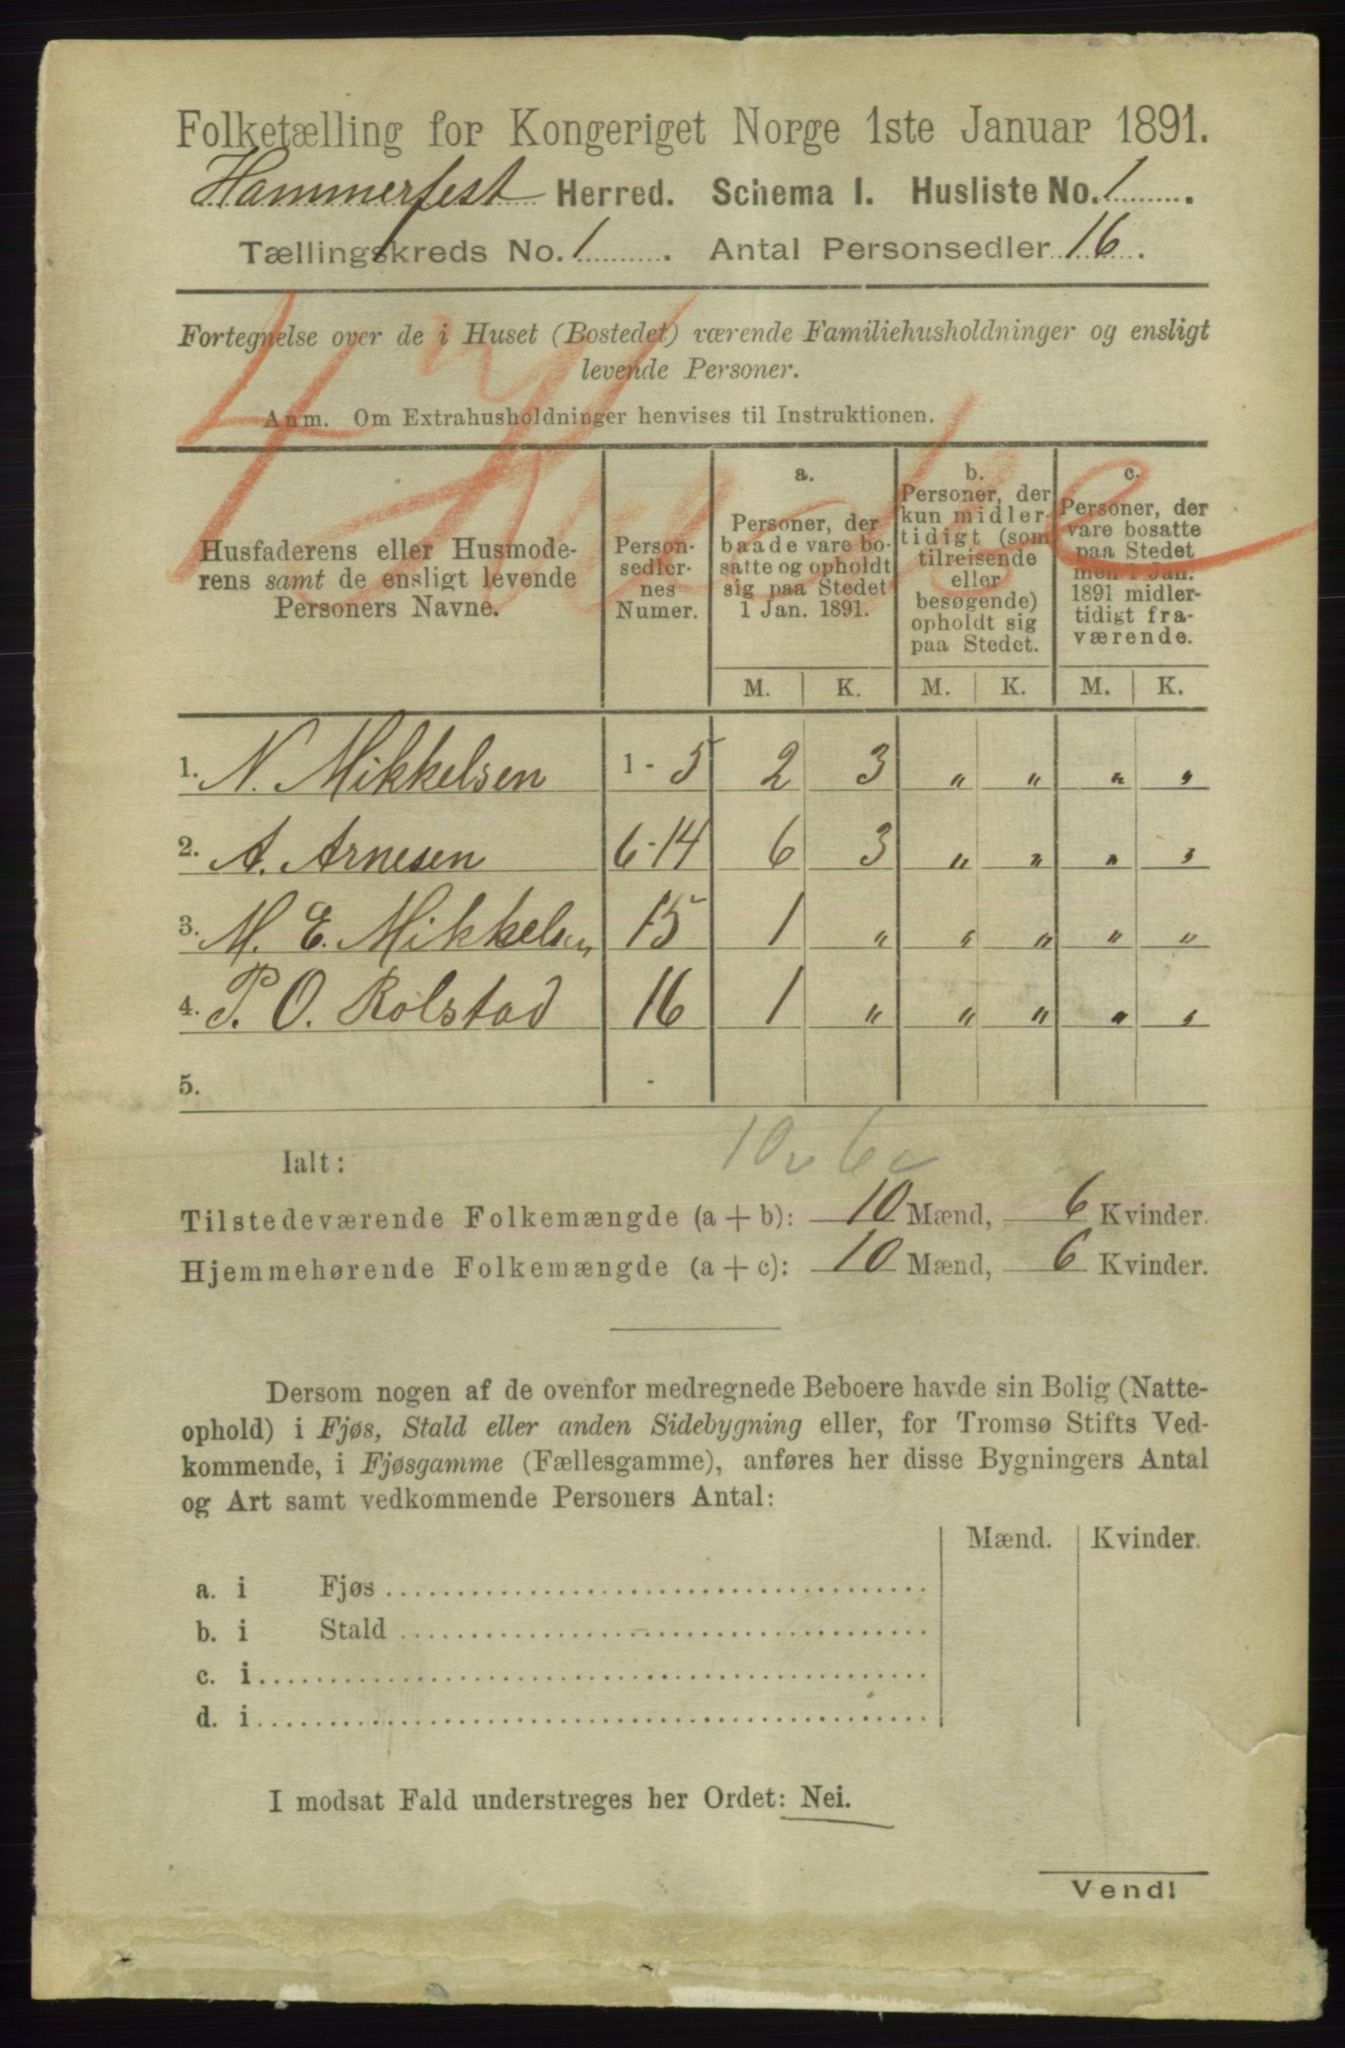 Folketælling for Kongeriget Norge 1ste Januar 1891.
Hammerfest Herred. Schema I. Husliste No. 1.
Tællingskreds No. 1. Antal Personsedler 16.
Fortegnelse over de i Huset (Bostedet) værende Familiehusholdninger og ensligt
levende Personer.
Anm. Om Extrahusholdninger henvises til Instruktionen.
Husfaderens eller Husmode-
rens samt de ensligt levende
Personers Navne.
Person-
sedler-
nes
Numer.
a.
Personer, der
baade vare bo-
satte og opholdt
sig paa Stedet
1 Jan. 1891.
b.
Personer, der
kun midler-
tidigt (som
tilreisende
eller
besøgende)
opholdt sig
paa Stedet.
c.
Personer, der
vare bosatte
paa Stedet
men 1 Jan.
1891 midler-
tidigt fra-
værende.
M. K. M. K. M. K.
1. N. Mikkelsen 1 - 5 2 3 " " " "
2. A. Arnesen 6-14 6 3 " " " "
3. M. E. Mikkelsen 15 1 " " " " "
4. P. O. Rolstad 16 1 " " " " "
5. -
10 6
Ialt:
Tilstedeværende Folkemængde (a + b): 10 Mænd, 6 Kvinder.
Hjemmehørende Folkemængde (a + c): 10 Mænd, 6 Kvinder.
Dersom nogen af de ovenfor medregnede Beboere havde sin Bolig (Natte-
ophold) i Fjøs, Stald eller anden Sidebygning eller, for Tromsø Stifts Ved-
kommende, i Fjøsgamme (Fællesgamme), anføres her disse Bygningers Antal
og Art samt vedkommende Personers Antal:
Mænd. Kvinder.
a. i Fjøs
b. i Stald
c. i
d. i
I modsat Fald understreges her Ordet: Nei.
Vend!